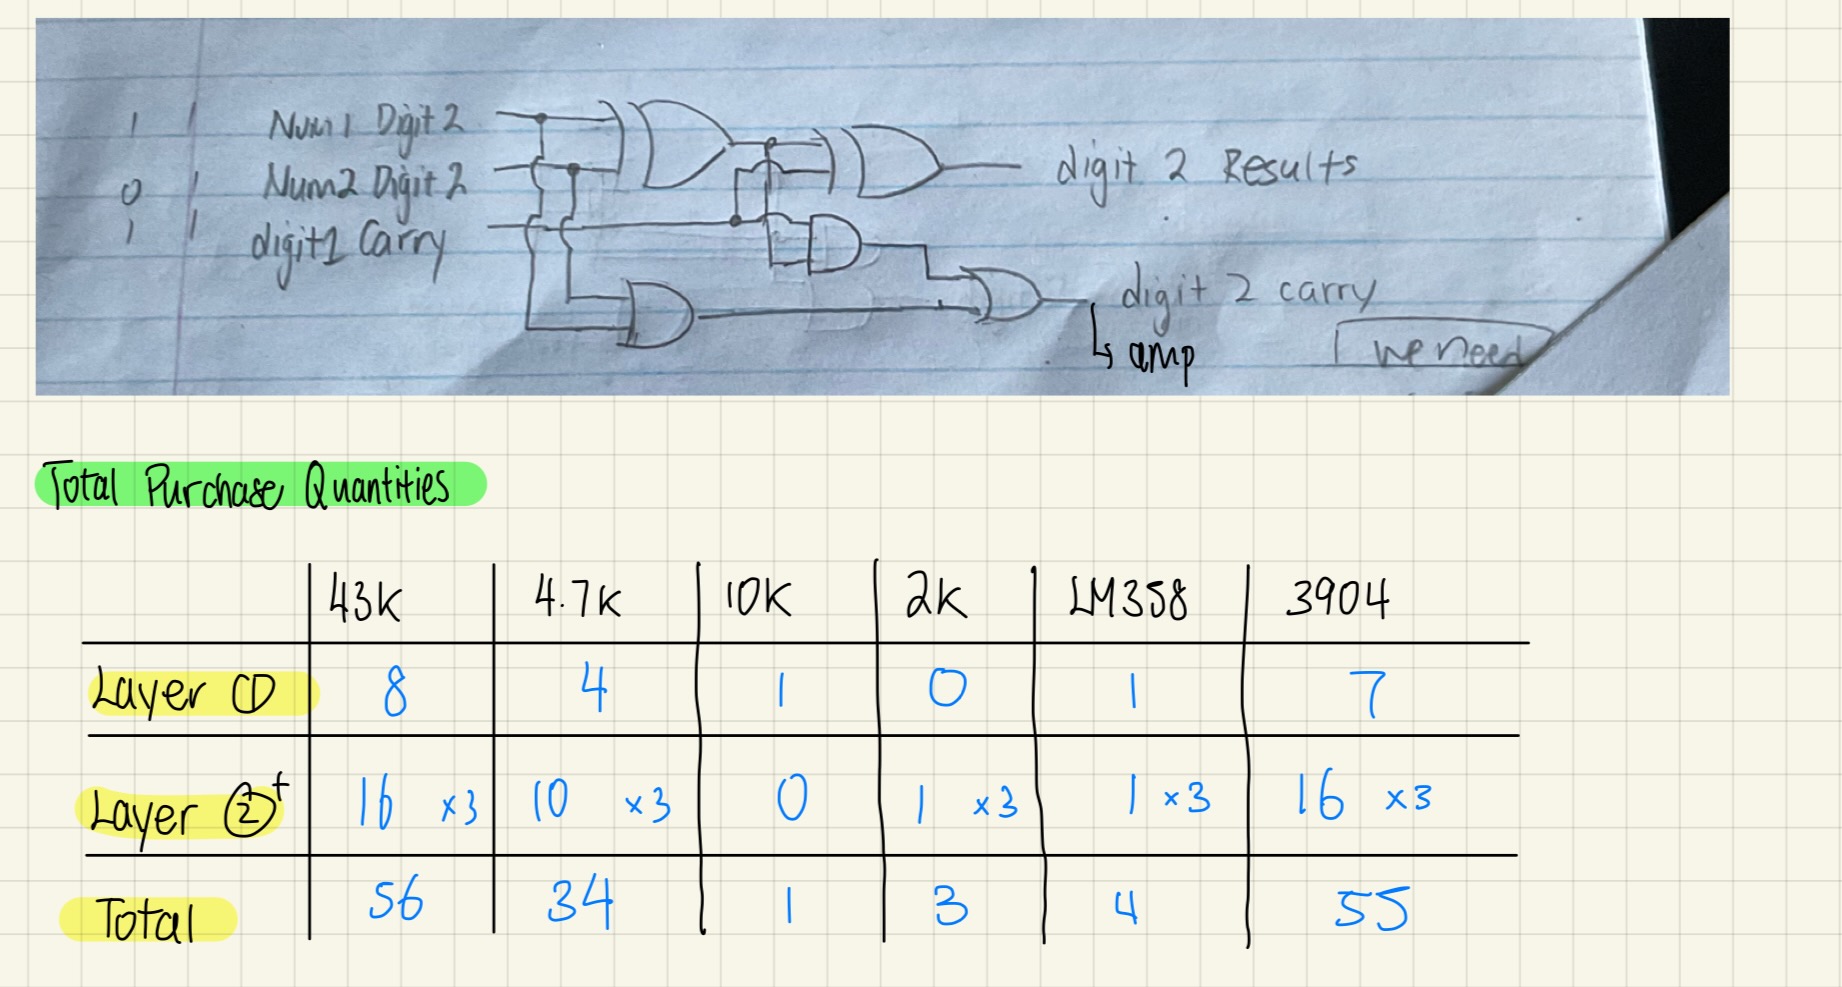 1 1 Num1 Digit 2
0 1 Num2 Digit 2
1 1 digit1 Carry
digit 2 Results
digit 2 carry
↳ amp
we need
Total Purchase Quantities
43K 4.7K 10K 2K LM358 3904
Layer ① 8 4 1 0 1 7
Layer ②+ 16 ×3 10 ×3 0 1 ×3 1 ×3 16 ×3
Total 56 34 1 3 4 55